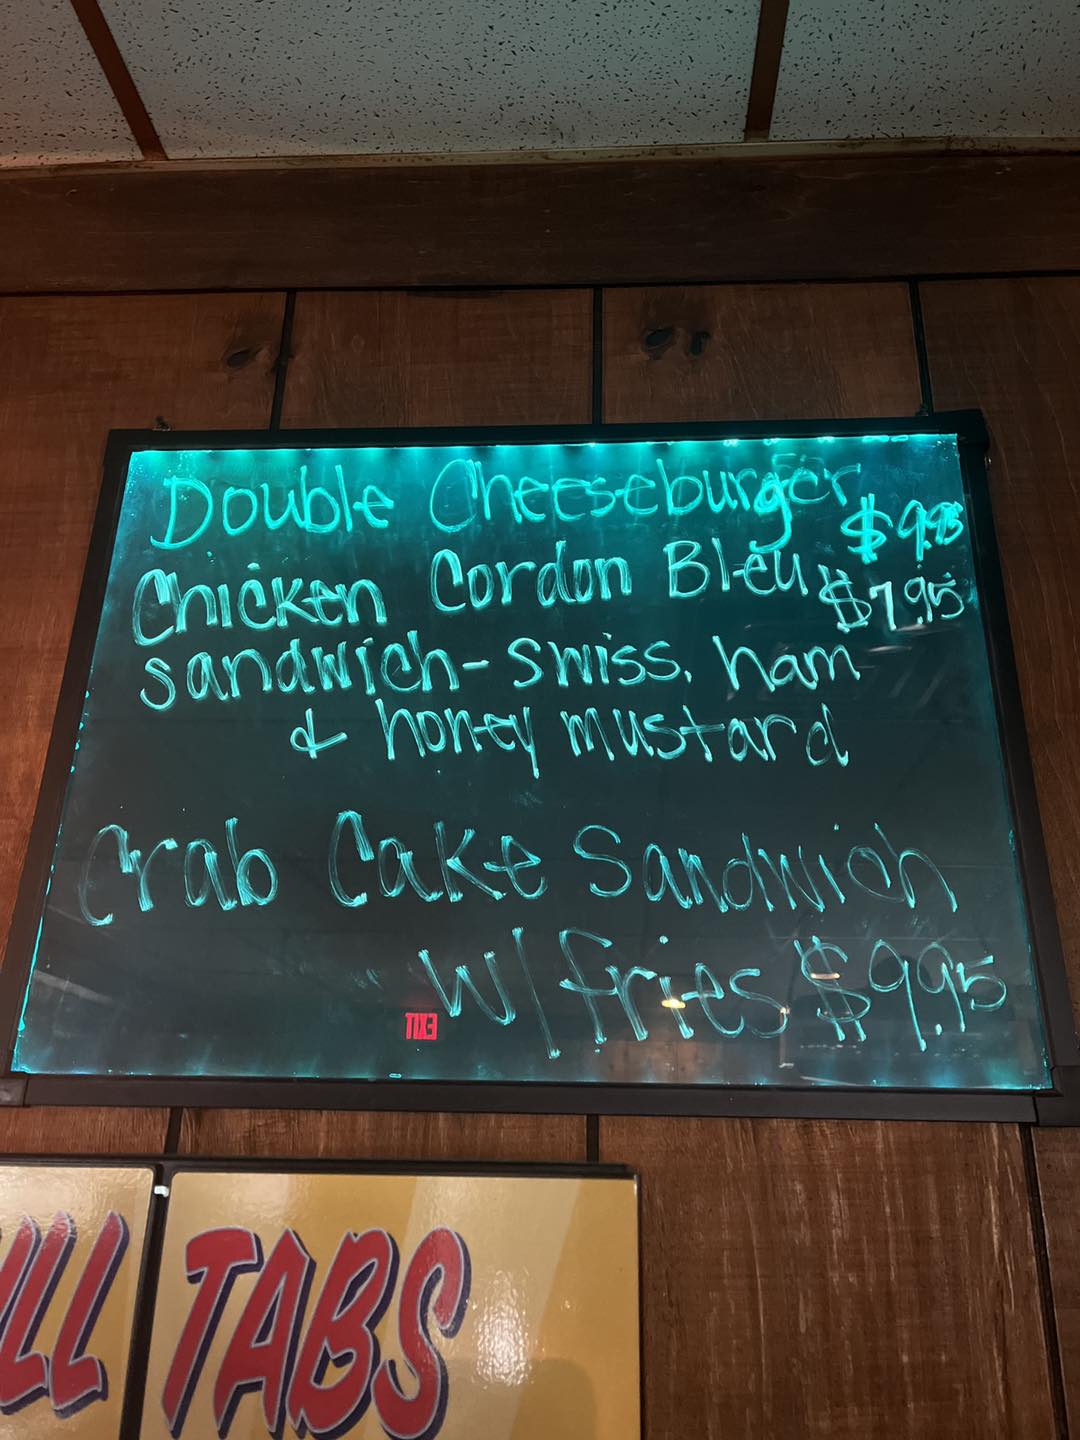 Double Cheeseburger $9.95
Chicken Cordon Bleu $7.95
sandwich - swiss, ham
& honey mustard
Crab Cake Sandwich
w/ fries $9.95
EXIT
TABS